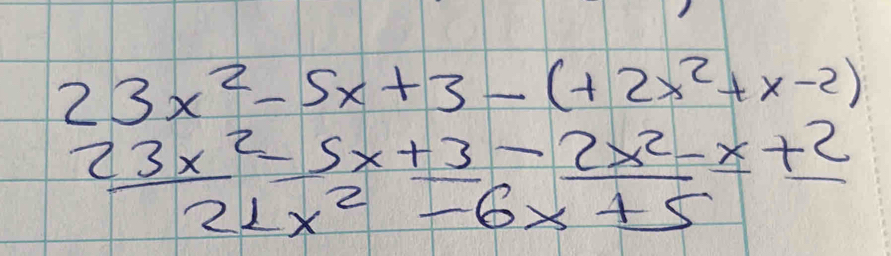 23x² - 5x + 3 - (+2x² + x - 2)
23x² - 5x + 3 - 2x² - x + 2
21x² - 6x + 5